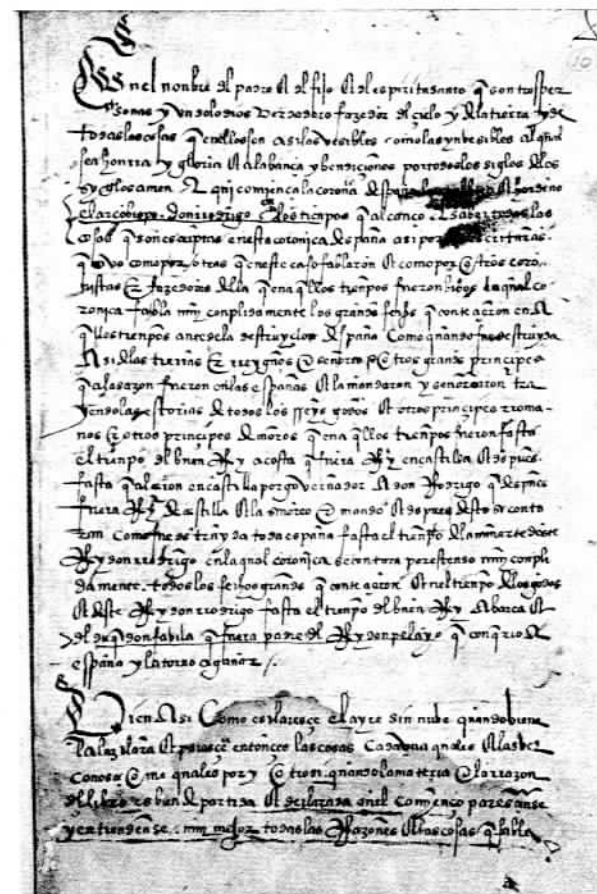 10
En el nonbre del padre & del fijo & del espiritu santo q̃ son tres per
sonas y un solo dios verdadero fazedor del cielo y de la tierra y de
todas las cosas q̃ en ellos son asi las vesibles como las ynvesibles al qual
sea honrra y gloria & alabança y bendiciones por todos los siglos de los
syglos amen Aqui comiença la coronica de españa & hordeno
el arçobispo don rrodrigo de los tienpos q̃ alcanço & saber todas las
cosas q̃ son escriptas en esta coronica de españa asi por escrituras
q̃ vio como por otras q̃ en este caso fablaron & como por otros coro
nistas & fazedores della q̃ en aq̃llos tienpos fueron la qual co
ronica fabla muy conplidamente los grandes fechos q̃ conteçieron en a
q̃llos tienpos antes de la destruycion de españa Como quando fue destruyda
& si de las tierras & rreygnos & señores & otros grandes principes
q̃ a la sazon fueron en las españas & la mandaron y señorearon tra
yendo las estorias de todos los rreys godos & otros principes rroma
nos & otros principes de moros q̃ en aq̃llos tienpos fueron fasta
el tienpo del buen Rey acosta q̃ fuera Rey en castilla & despues
fasta q̃ alçaron en castilla por governador a don Rodrigo q̃ despues
fuera Rey de castilla & la señoreo & mando & despues desto se conto
como fue destruyda toda españa fasta el tienpo de la muerte deste
Rey don rrodrigo en la qual coronica se contara por estenso muy conpli
damente todos los fechos grandes q̃ conteçieron & en el tienpo de los godos
& deste Rey don rrodrigo fasta el tienpo del buen Rey abarca &
del duq̃ don fabila q̃ fuera padre del Rey don pelayo q̃ conq̃rio a
españa y la torno a ganar
Bien Asi Como esclaresce el ayre sin nube quando viene
la luz clara & paresçe entonces las cosas Cada una quales & las ber
Conosce quales por y otrosi quando la materia o la rrazon
del libro es bien departida & declarada en el Comienço paresçense
y entiendense muy mejor todas las Razones & las cosas q̃ fabla